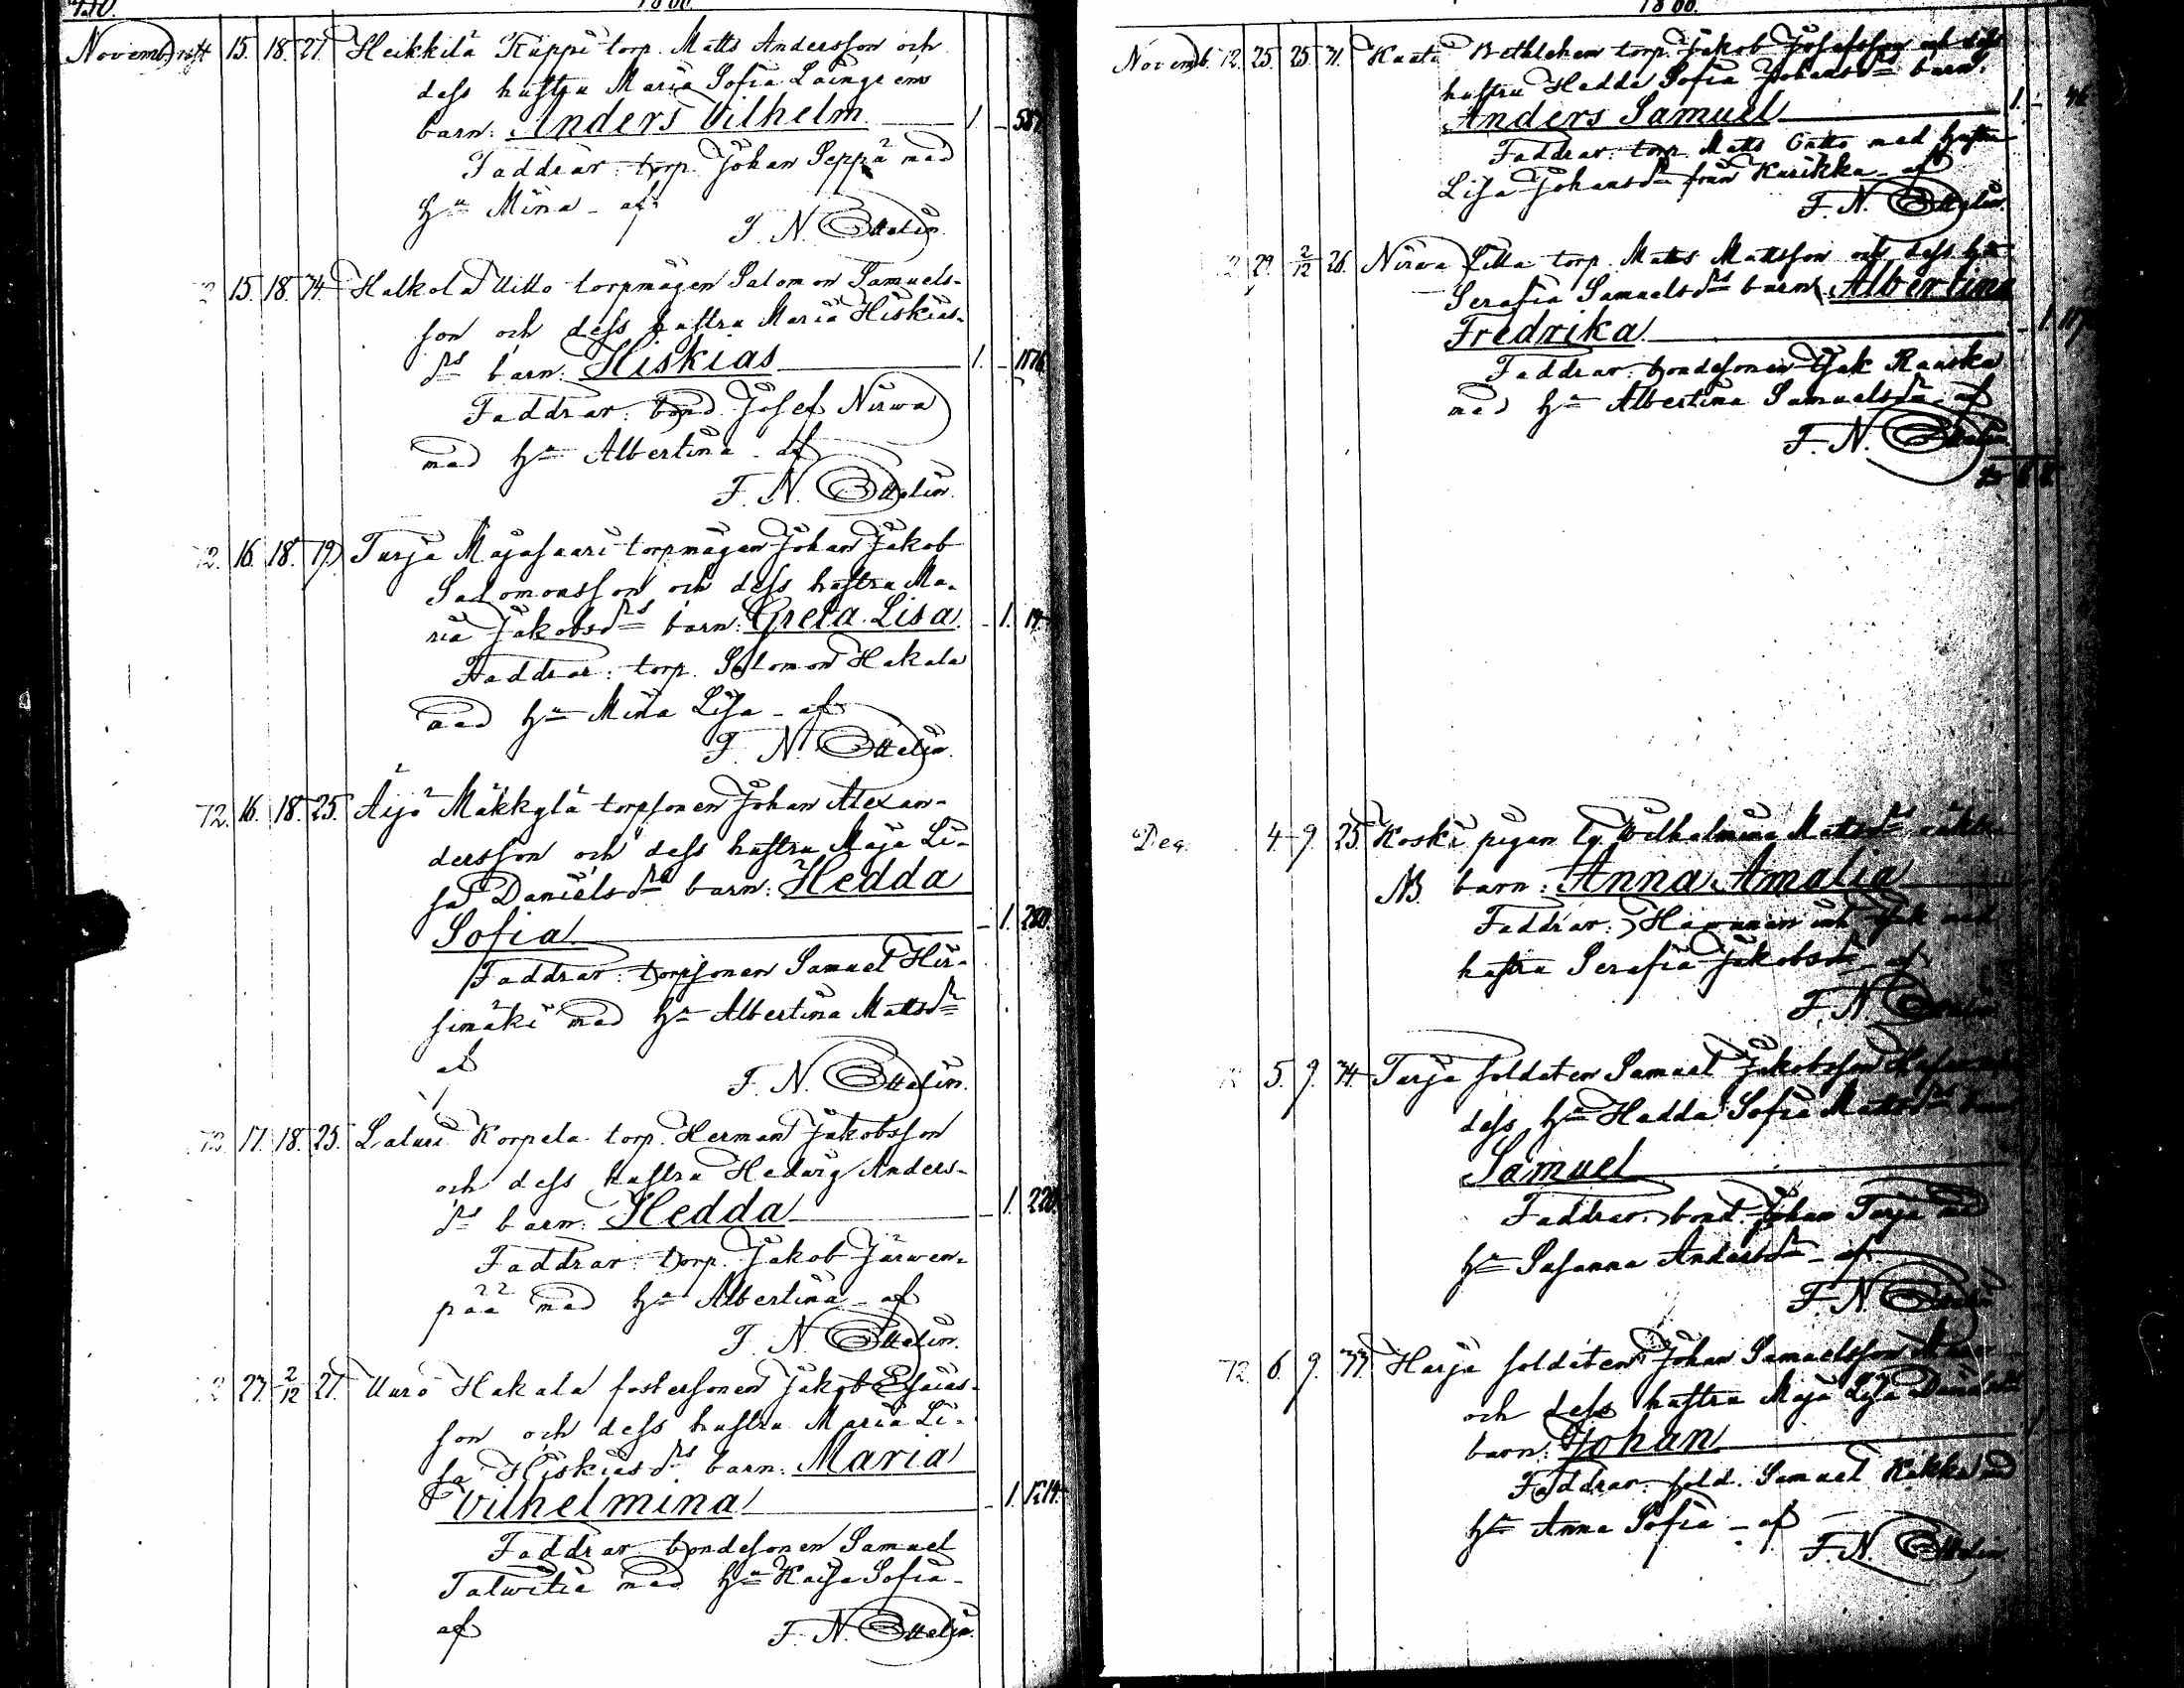 1866.
Novemb. 15. 18. 27. Heikkilä Kuppi torp. Matts Andersson och
dess hustru Maria Sofia Laingrens
barn: Anders Vilhelm 1.
Faddrar: torp. Johan Seppä med
hu Mina - af
F. N. Ottelin.
15. 18. 34. Halkola Uitto torpmågen Salomon Samuels-
son och dess hustru Maria Hiskias-
drs barn: Hiskias 1.
Faddrar: bond. Josef Nirwa
med hu Albertina - af
F. N. Ottelin.
72. 16. 18. 19. Turja Majasaari torpmågen Johan Jakob
Salomonsson och dess hustru Ma-
ria Jakobsdrs barn: Greta Lisa. 1.
Faddrar: torp. Salomon Hakala
med hu Mina Lisa - af
F. N. Ottelin.
72. 16. 18. 25. Äijö Mäkkylä torpsonen Johan Alexan-
dersson och dess hustru Maja Li-
sa Danielsdrs barn: Hedda
Sofia 1. 280.
Faddrar: torpsonen Samuel Hir-
simäki med hu Albertina Mattsdr
af
F. N. Ottelin.
72. 17. 18. 25. Laturi Korpela torp. Herman Jakobsson
och dess hustru Hedvig Anders-
drs barn: Hedda 1. 220.
Faddrar: torp. Jakob Järwen-
pää med hu Albertina - af
F. N. Ottelin.
27. 2/12 27. Uuro Hakala fostersonen Jakob Esaias-
son och dess hustru Maria Li-
sa Hiskiasdrs barn: Maria
Vilhelmina 1.
Faddrar bondesonen Samuel
Talwitie med hu Kajsa Sofia -
af F. N. Ottelin.
1866.
Novemb. 12. 25. 25. 31. Bethlehem torp. Jakob Josefsson och dess
hustru Hedda Sofia Johansdrs barn:
Anders Samuel 1.
Faddrar: torp. Matts Otto med hustru
Lisa Johansdr från Karikka - af
F. N. Ottelin.
29. 2/12 26. Nirwa torp. Matts Mattsson och dess hu
Serafia Samuelsdrs barn: Albertina
Fredrika 1.
Faddrar: bondesonen Isak Ranska
med hu Albertina Samuelsdr - af
F. N. Ottelin.
Dec. 4. 9. 25. Koski pigan Wilhelmina Mattsdrs oäkta
NB. barn: Anna Amalia
Faddrar: Isak med
hustru Serafia Jakobsdr - af
F. N. Ottelin
5. 9. 34. Turja soldaten Samuel Jakobsson
dess hu Hedda Sofia Mattsdrs barn
Samuel
Faddrar: bond. Johan Turja med
hu Susanna Andersdr - af
F. N. Ottelin
72. 6. 9. 33. Harja soldaten Johan Samuelsson
och dess hustru Maja Lisa
barn: Johan
Faddrar: sold. Samuel Kokko med
hu Anna Sofia - af
F. N. Ottelin